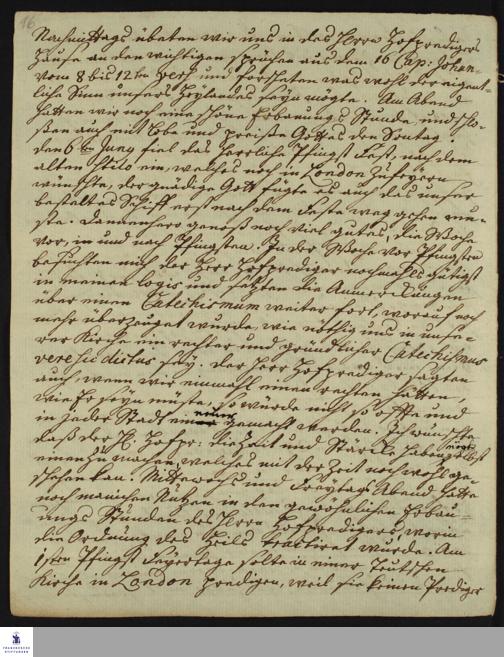 16.
Nachmittags übeten wir uns in des Herrn Hofpredigers
Hause an den wichtigen Sprüchen aus dem 16 Cap: Johan.
vom 8 bis 12ten vers und forscheten was wohl der eigent-
liche Sinn unsers Heylandes seyn mögte. Am Abend
hatten wir noch eine schöne Erbauungs Stunde, und schlo-
ßen auch mit Lobe und preiße Gottes den Sontag
den 6ten Juny fiel das herrliche Pfingst Fest, nach dem
alten Stilo ein, welches noch in London zu feyern
wünschte, der gnädige Gott fügte es auch das unser
bestaltes Schiff erst nach dem Feste weg gehen mu-
ste. Dannenhero genoß noch viel gutes, die Woche
vor, in und nach Pfingsten. In der Woche vor Pfingsten
besuchten mich der Herr Hofprediger nochmahls gütigst
in meinen logis und setzten die Anmerckungen
über einen Catechismum weiter fort, worauf noch
mehr überzeuget wurde, wie nöthig uns in unse-
rer Kirche ein rechter und gründlicher Catechismus
vere sic dictus sey. Der Herr Hofprediger sagten
auch, wenn wir einmahl einen rechten hätten,
wie Er seyn müste, so würde nicht so offte und
in jeder Stadt einer gemacht werden. Ich wünschte
daß der H. Hofpr: die Zeit und Stärcke haben mögte selbst
einen zu machen, welches mit der Zeit noch wohl ge-
schehen kan. Mittewochs und Freytags Abend hatte
noch manichen Nutzen in den gewöhnlichen Erbau-
ungs Stunden des Herrn Hofpredigers, worin
die Ordnung des Heils tractiret wurde. Am
1sten Pfingst Feyertage solte in einer Teutschen
Kirche in London predigen, weil sie keinen Prediger
FRANCKESCHE
STIFTUNGEN